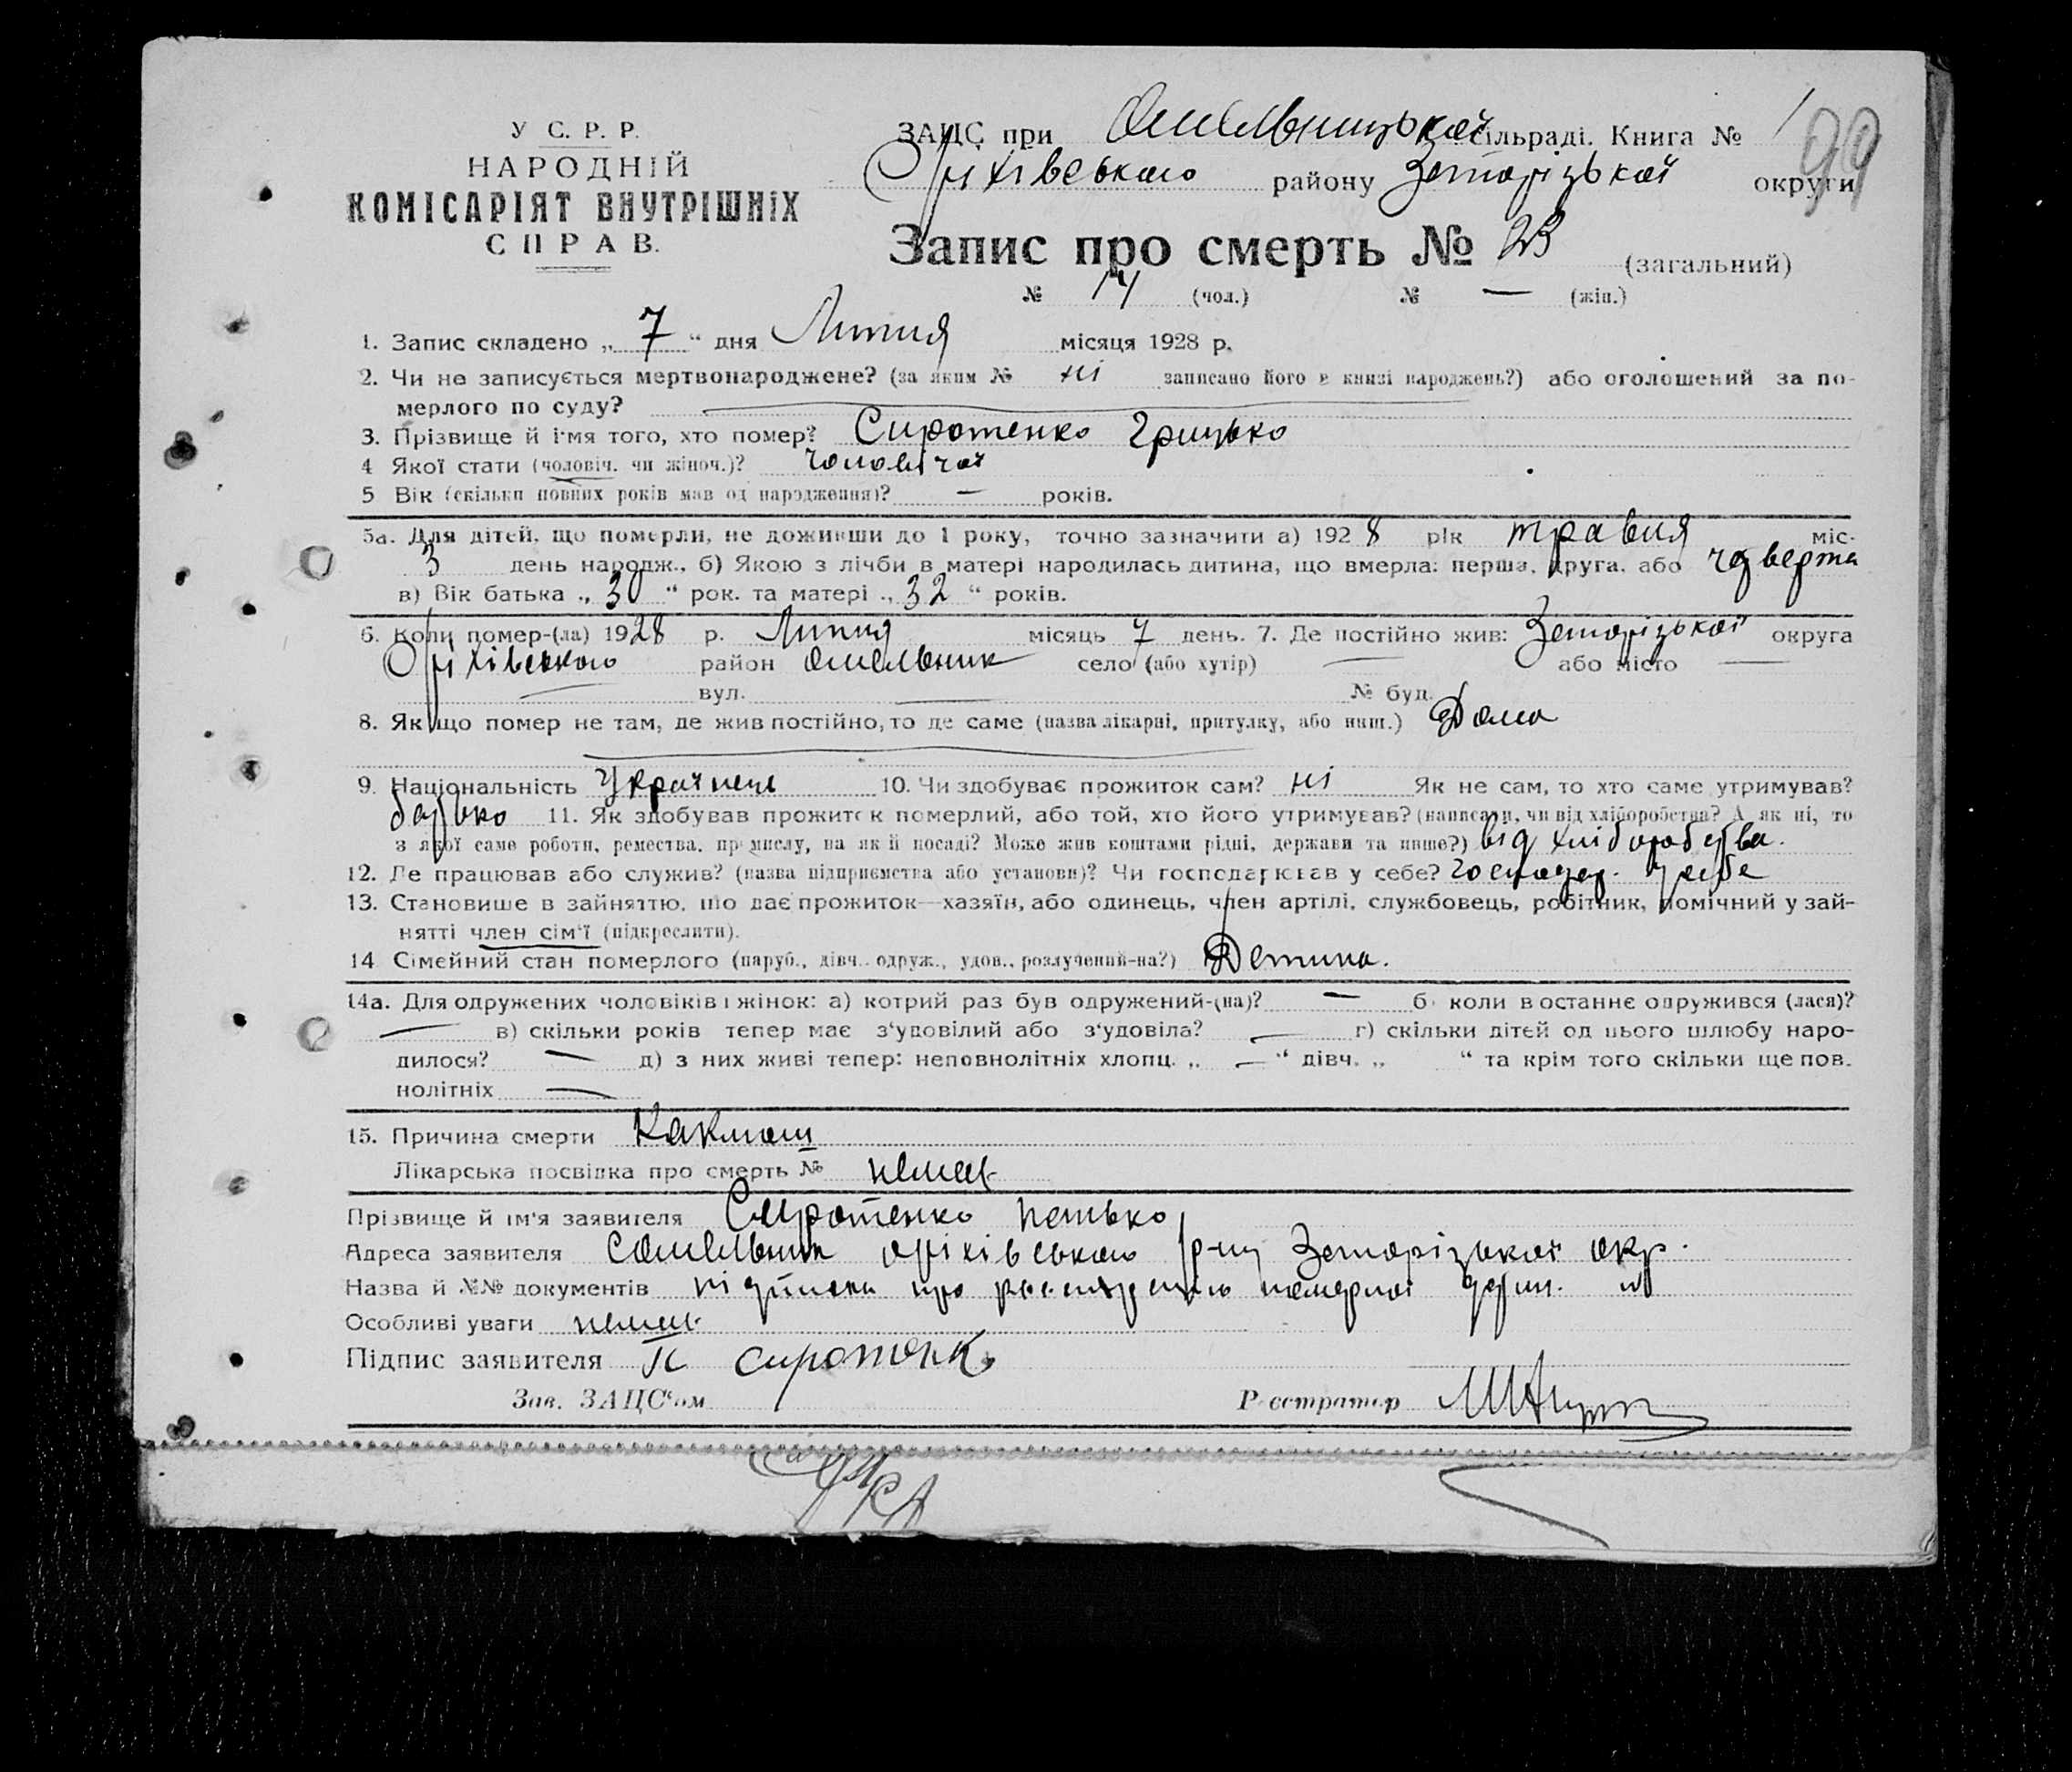 У С. Р. Р.
НАРОДНІЙ
КОМІСАРІЯТ ВНУТРІШНІХ
СПРАВ.
ЗАЦС при Омельницької сільраді. Книга № 1
99
Оріхівського району Запорізької округи
Запис про смерть № 23 (загальний)
№ 14 (чол.) № — (жін.)
1. Запис складено „ 7 “ дня Липня місяця 1928 р.
2. Чи не записується мертвонароджене? (за яким № ні записано його в книзі народжень?) або оголошений за по-
мерлого по суду?
3. Прізвище й імя того, хто помер? Сиротенко Грицько
4 Якої стати (чоловіч. чи жіноч.)? чоловічої
5 Вік (скільки повних років мав од народження)? — років.
5а. Для дітей, що померли, не доживши до 1 року, точно зазначити а) 1928 рік травня міс.
3 день народж., б) Якою з лічби в матері народилась дитина, що вмерла: перша, друга, або четверта
в) Вік батька „ 30 “ рок. та матері „ 32 “ років.
6. Коли помер-(ла) 1928 р. Липня місяць 7 день. 7. Де постійно жив: Запорізької округа
Оріхівського район Омельник село (або хутір) — або місто —
— вул. — № буд.
8. Якщо помер не там, де жив постійно, то де саме (назва лікарні, притулку, або инш.) Дома
9. Національність Українець 10. Чи здобуває прожиток сам? ні Як не сам, то хто саме утримував?
батько 11. Як здобував прожиток померлий, або той, хто його утримував? (написати, чи від хліборобства? А як ні, то
з якої саме роботи, ремества, промислу, на якій посаді? Може жив коштами рідні, держави та инше?) від хліборобства.
12. Де працював або служив? (назва підприємства або установи)? Чи господарював у себе? господар. у себе
13. Становище в зайняттю, що дає прожиток—хазяїн, або одинець, член артілі, службовець, робітник, помічний у зай-
нятті член сім'ї (підкреслити).
14 Сімейний стан померлого (паруб., дівч., одруж., удов., розлучений-на?) Детина.
14а. Для одружених чоловіків і жінок: а) котрий раз був одружений-(на)? — б) коли в останнє одружився (лася)?
— в) скільки років тепер має з‘удовілий або з‘удовіла? — г) скільки дітей од цього шлюбу наро-
дилося? — д) з них живі тепер: неповнолітніх хлопц. „ — “ дівч. „ “ та крім того скільки ще пов.
нолітніх —
15. Причина смерти Какмош
Лікарська посвідка про смерть № немає
Прізвище й ім'я заявителя Сиротенко Петько
Адреса заявителя с Омельник Оріхівського р-ну Запорізької окр.
Назва й №№ документів підписка про
Особливі уваги немає
Підпис заявителя П Сиротенко
Зав. ЗАЦС‘ом Реєстратор